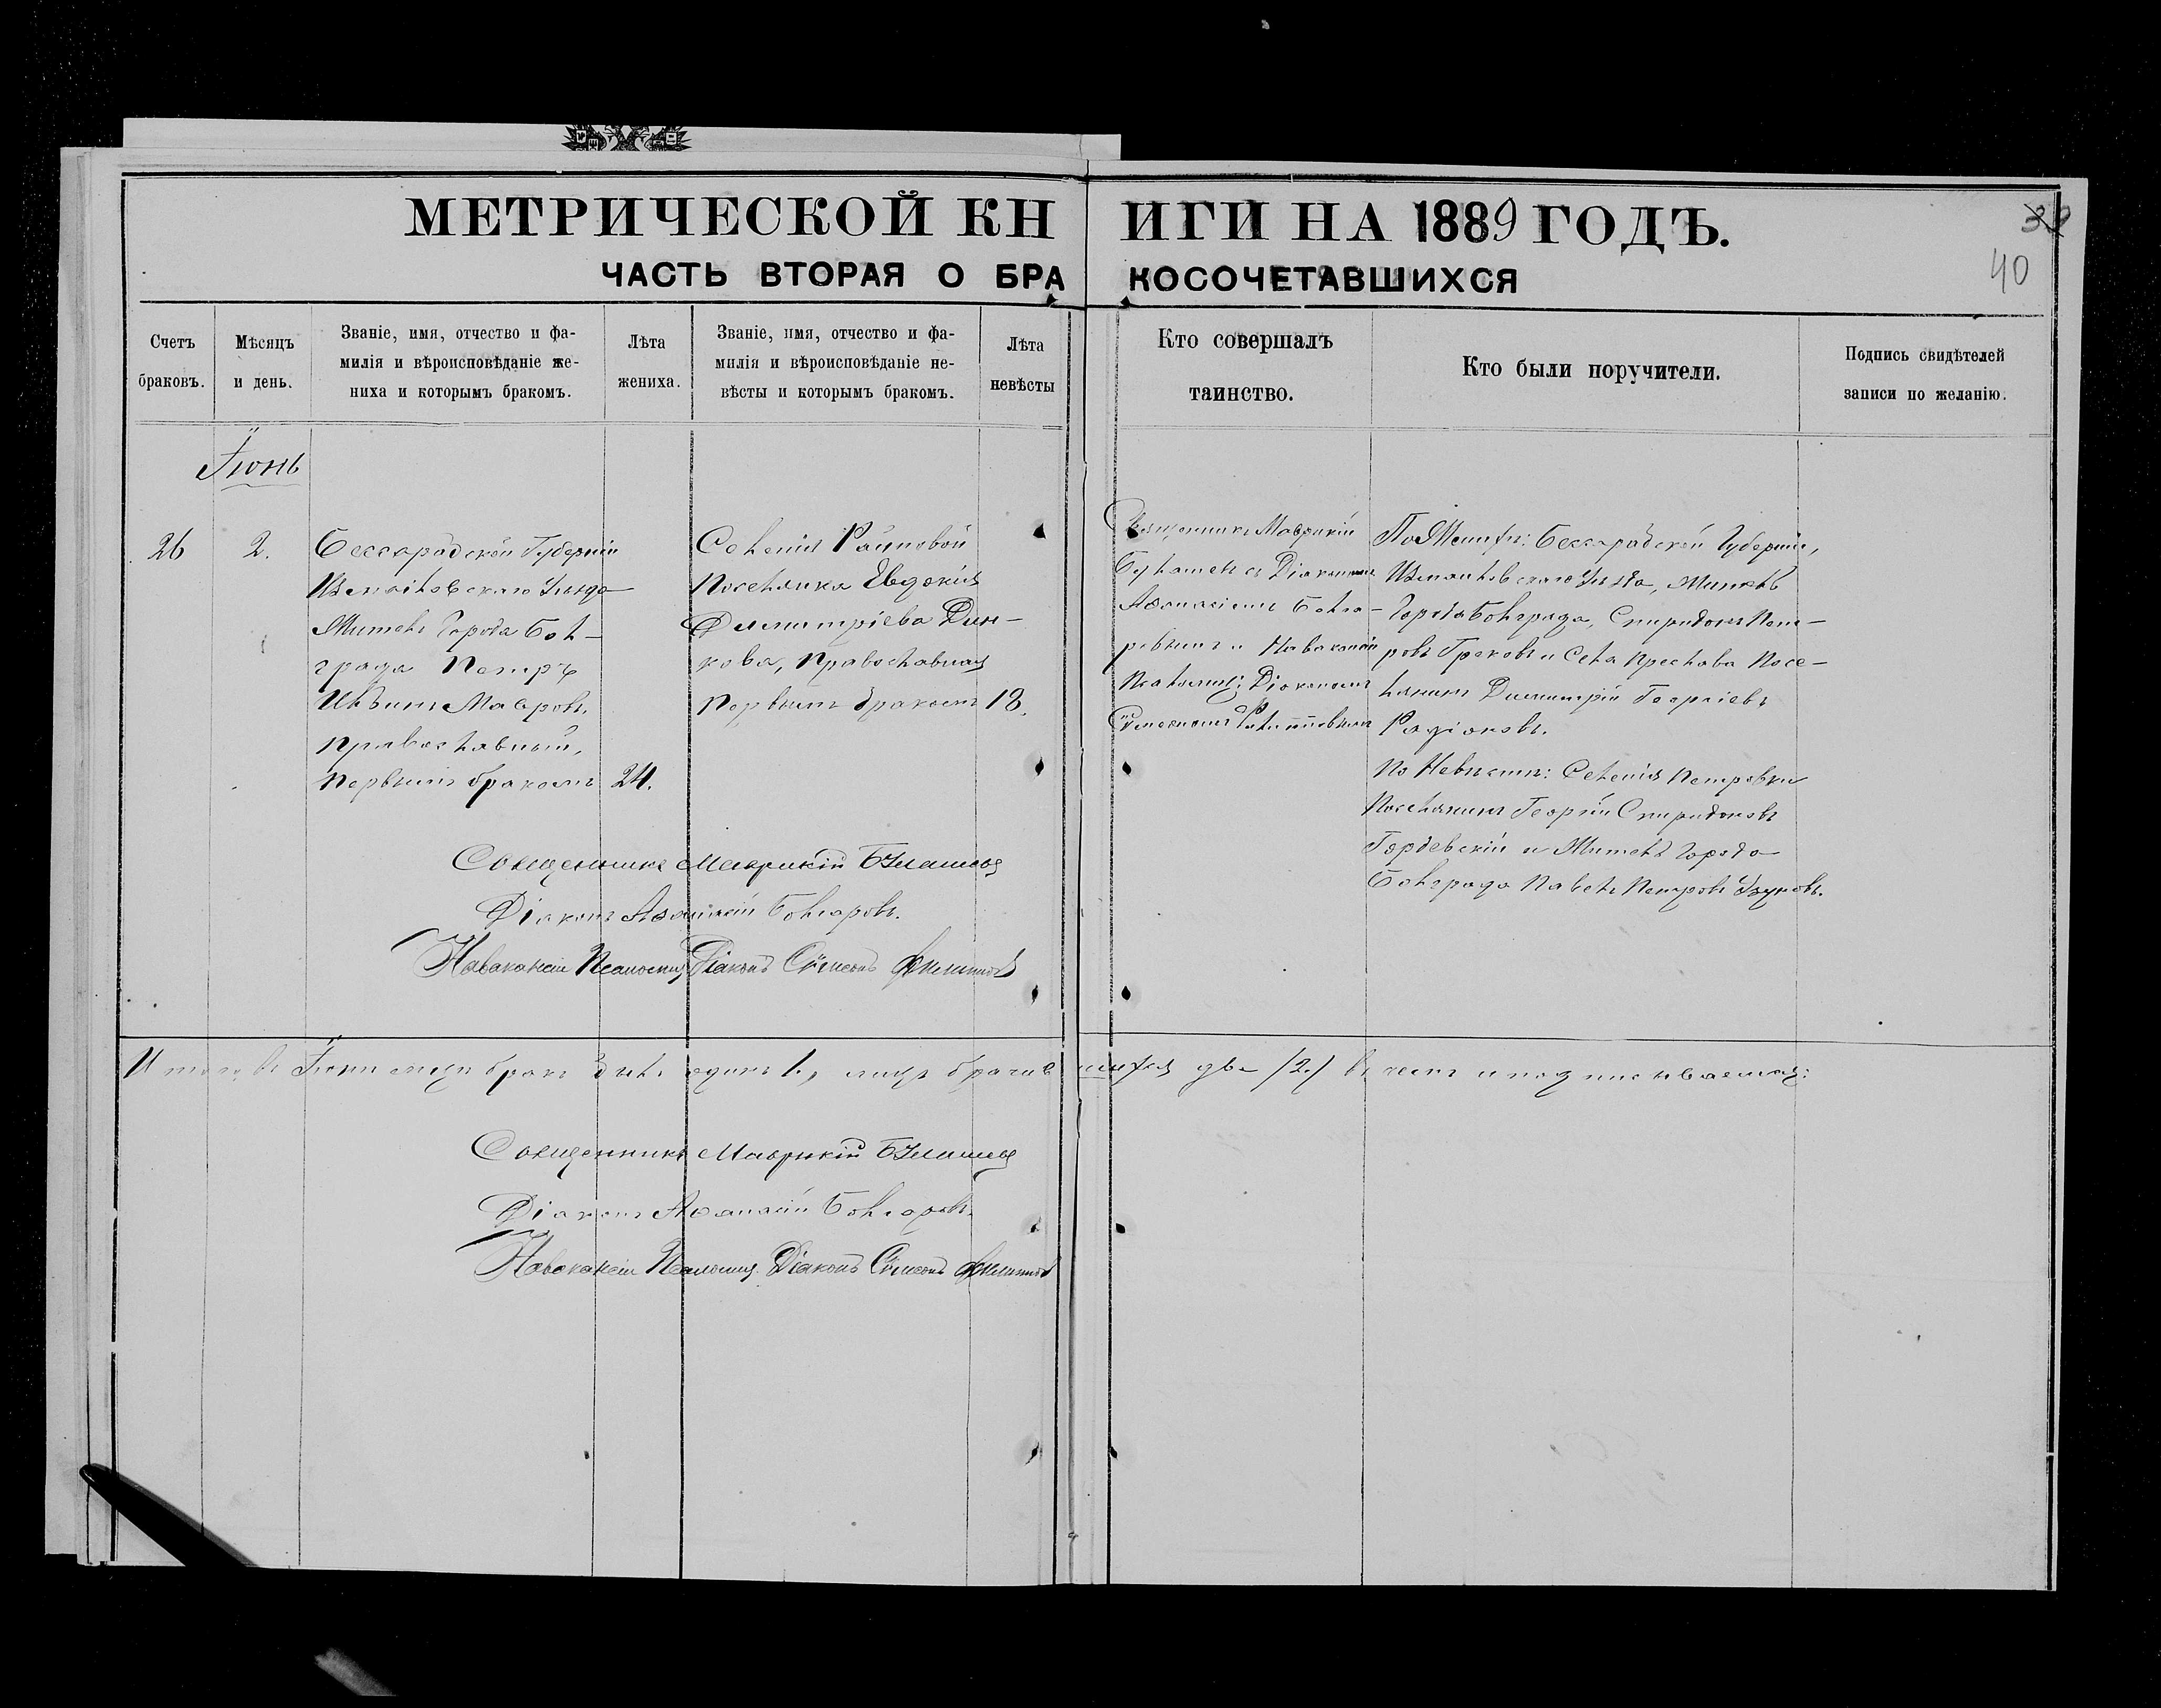 МЕТРИЧЕСКОЙ КНИГИ НА 1889 ГОДЪ.
ЧАСТЬ ВТОРАЯ О БРАКОСОЧЕТАВШИХСЯ
39
40
Счетъ браковъ.
Мѣсяцъ и день.
Званіе, имя, отчество и фа-
милія и вѣроисповѣданіе же-
ниха и которымъ бракомъ.
Лѣта жениха.
Званіе, имя, отчество и фа-
милія и вѣроисповѣданіе не-
вѣсты и которымъ бракомъ.
Лѣта невѣсты
Кто совершалъ
таинство.
Кто были поручители.
Подпись свидѣтелей
записи по желанію.
Іюнь
26
2.
Бессарабской Губерніи
Измаиловскаго Уѣзда
Житель Города Бол-
града Петръ
Маѳровъ.
Православный,
первымъ бракомъ
24.
Селенія Раиновой
Поселянка Евдокія
Димитріева Дин-
кова, Православная
первымъ бракомъ
18.
Священникъ Маврикій
съ Діакономъ
Аѳанасіемъ Болга-
ровымъ и
Діакономъ
Сѵмеономъ Филипповымъ
По Жениху: Бессарабской Губерніи,
Измаиловскаго Уѣзда, Житель
Города Болграда, Спиридонъ Пет-
ровъ Грековъ и Села Преслава Посе-
лянинъ Димитрій Георгіевъ
Радіоновъ.
По Невѣстѣ: Селенія Петровки
Поселянинъ Георгій Спиридоновъ
Гордевскій и Житель Города
Болграда Павелъ Петровъ Узуновъ.
Священникъ Маврикій
Діаконъ Аѳанасій Болгаровъ.
Діаконъ Сѵмеонъ Филипповъ
Итого въ Іюнѣ бракъ былъ одинъ 1, лицъ брачившихся два /2./ въ чемъ и подписываемся:
Священникъ Маврикій
Діаконъ Аѳанасій Болгаровъ.
Діаконъ Сѵмеонъ Филипповъ